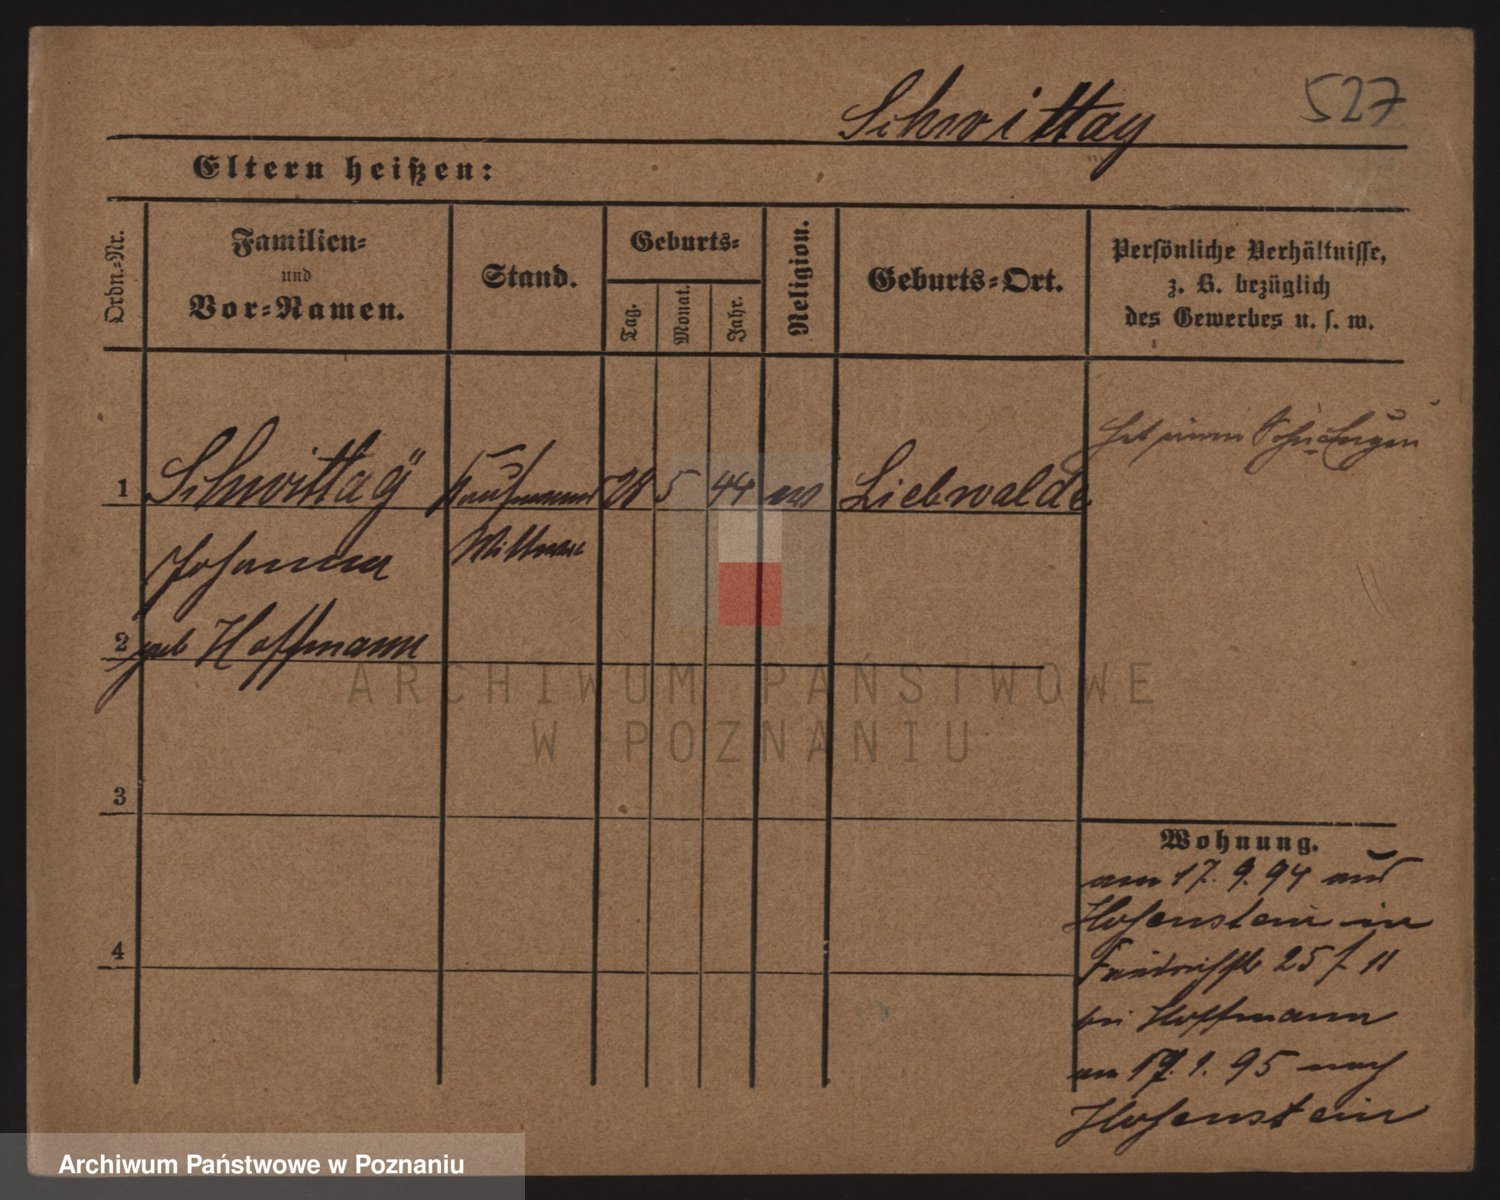 Schwittay 527
Eltern heißen:
Ordn.-Nr.
Familien-
und
Vor-Namen.
Stand.
Geburts-
Tag.
Monat.
Jahr.
Religion.
Geburts-Ort.
Persönliche Verhältnisse,
z. B. bezüglich
des Gewerbes u. s. w.
1 Schwittaÿ Kaufmanns 28 5 44 Liebwalde
Johanna
2 geb Hoffmann
hat einen Sohn Eugen
3
4
Wohnung.
am 17. 9. 94 aus
Hohenstein in
Friedrichstr 25 f. II
bei Hoffmann
am 19. 1. 95 nach
Hohenstein
ARCHIWUM PAŃSTWOWE
W POZNANIU
Archiwum Państwowe w Poznaniu